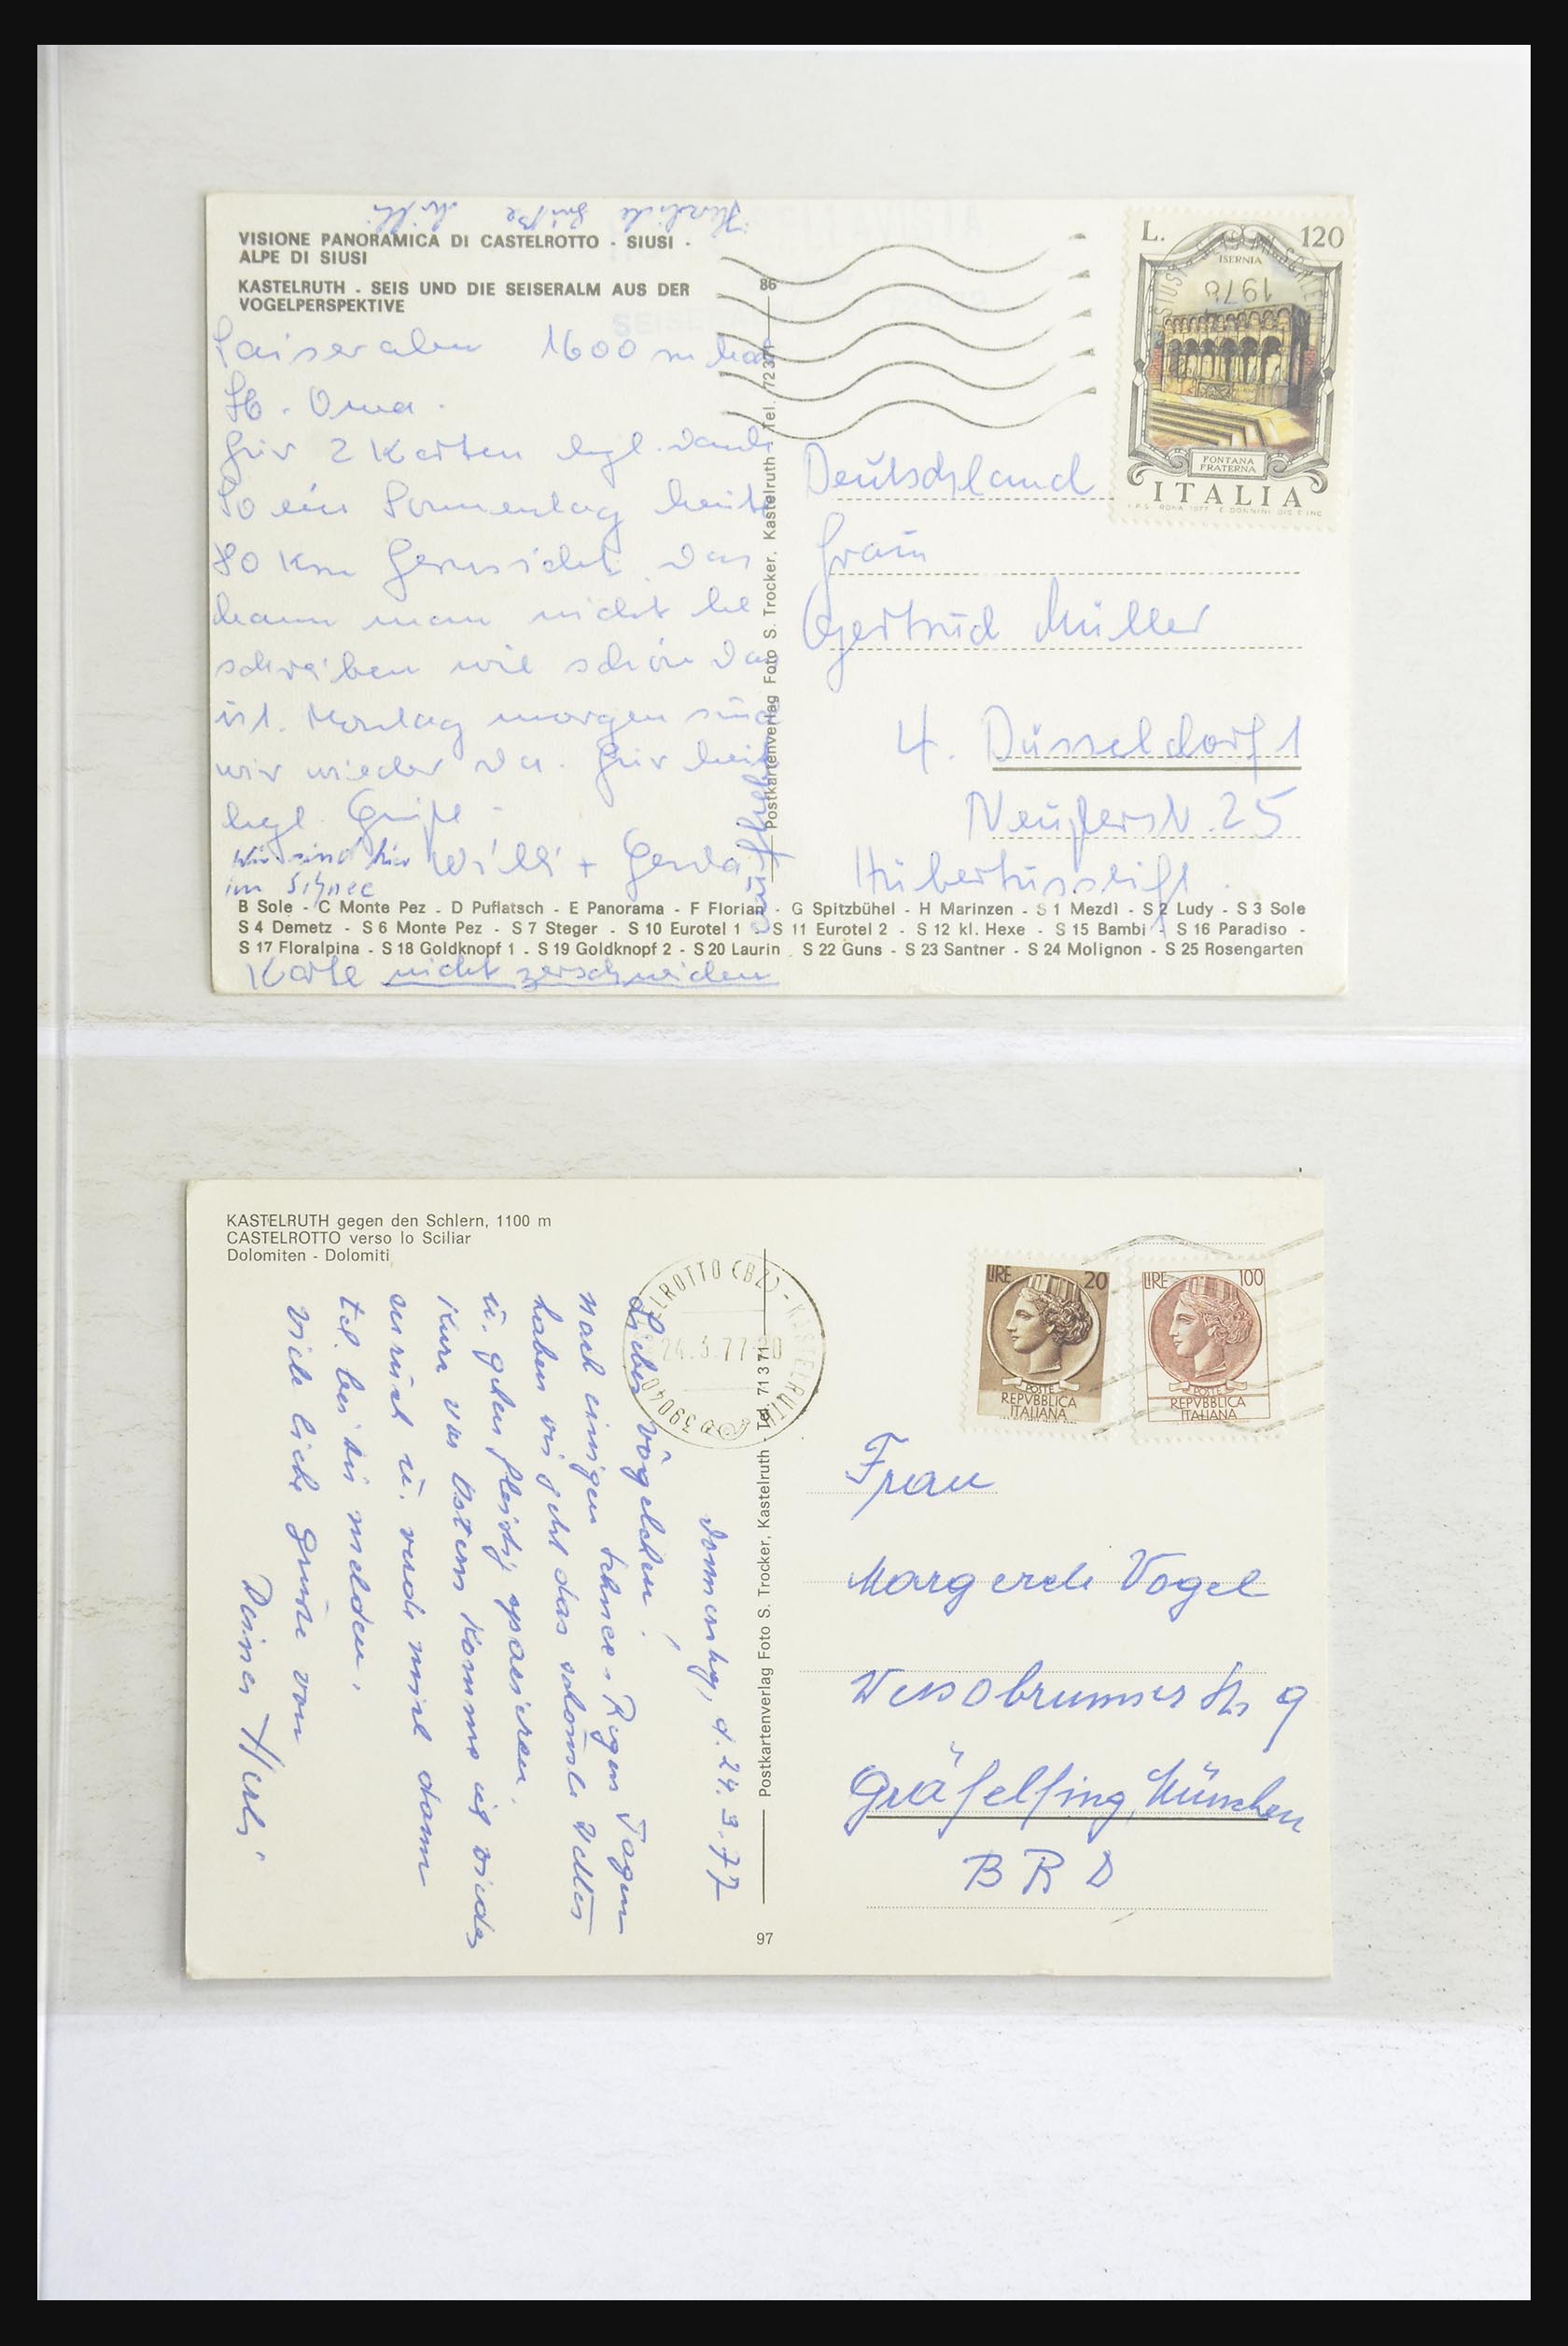 Herzliche Grüße Willi
VISIONE PANORAMICA DI CASTELROTTO - SIUSI -
ALPE DI SIUSI
KASTELRUTH - SEIS UND DIE SEISERALM AUS DER
VOGELPERSPEKTIVE
1600 m hoch
Lb. Oma.
für 2 Karten hgl. Dank
So ein Sonnentag heute
80 Km Fernsicht. Das
kann man nicht be
schreiben wie schön das
ist. Montag morgen sind
wir wieder da. Für heute
hgl Grüße -
Willi + Gerda
Wir sind hier
im Schnee
86
Postkartenverlag Foto S. Trocker, Kastelruth - Tel. 72371
aufheben
L. 120
ISERNIA
1978
FONTANA
FRATERNA
ITALIA
I.P.S. ROMA 1977 E. DONNINI DIS. E INC.
Deutschland
Frau
Gertrud Müller
4. Düsseldorf 1
Neußerstr. 25
Hubertusstift
B Sole - C Monte Pez - D Puflatsch - E Panorama - F Florian - G Spitzbühel - H Marinzen - S 1 Mezdì - S 2 Ludy - S 3 Sole
S 4 Demetz - S 6 Monte Pez - S 7 Steger - S 10 Eurotel 1 - S 11 Eurotel 2 - S 12 kl. Hexe - S 15 Bambi - S 16 Paradiso -
S 17 Floralpina - S 18 Goldknopf 1 - S 19 Goldknopf 2 - S 20 Laurin S 22 Guns - S 23 Santner - S 24 Molignon - S 25 Rosengarten
Karte nicht zerschneiden
KASTELRUTH gegen den Schlern, 1100 m
CASTELROTTO verso lo Sciliar
Dolomiten - Dolomiti
Donnerstag, d. 24.3.77
Liebes Vögelchen!
Nach einigen Schnee- Regen Tagen
haben wir jetzt das schönste Wetter
u. gehen fleißig spazieren.
Kurz vor Ostern komme ich wieder
zurück u. werde mich dann
tel. bei dir melden.
Viele liebe Grüße von
Deiner
Postkartenverlag Foto S. Trocker, Kastelruth - Tel. 71371
97
CASTELROTTO (BZ) - KASTELRUTH
24.3.77-20
39040
LIRE 20
POSTE
REPVBBLICA
ITALIANA
LIRE 100
POSTE
REPVBBLICA
ITALIANA
Frau
Margerete Vogel
Wessobrunner Str 9
Gräfelfing, München
BRD